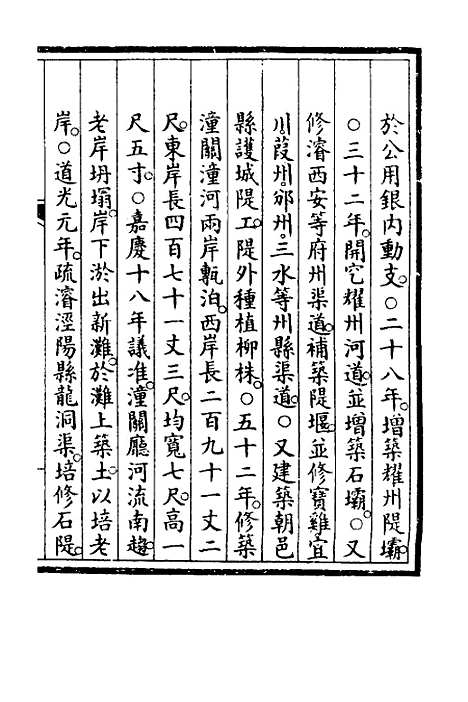 於公用銀內動支。○二十八年。增築耀州隄壩。
○三十二年。開穵耀州河道。並增築石壩。○又
修濬西安等府州渠道。補築隄堰。並修寶雞宜
川。葭州。邠州。三水等州縣渠道。○又建築朝邑
縣護城隄工。隄外種植柳株。○五十二年。修築
潼關潼河兩岸㼾泊。西岸長二百九十一丈二
尺。東岸長四百七十一丈三尺。均寬七尺。高一
尺五寸。○嘉慶十八年議准。潼關廳河流南趨。
老岸坍塌。岸下淤出新灘。於灘上築土。以培老
岸。○道光元年。疏濬涇陽縣龍洞渠。培修石隄。